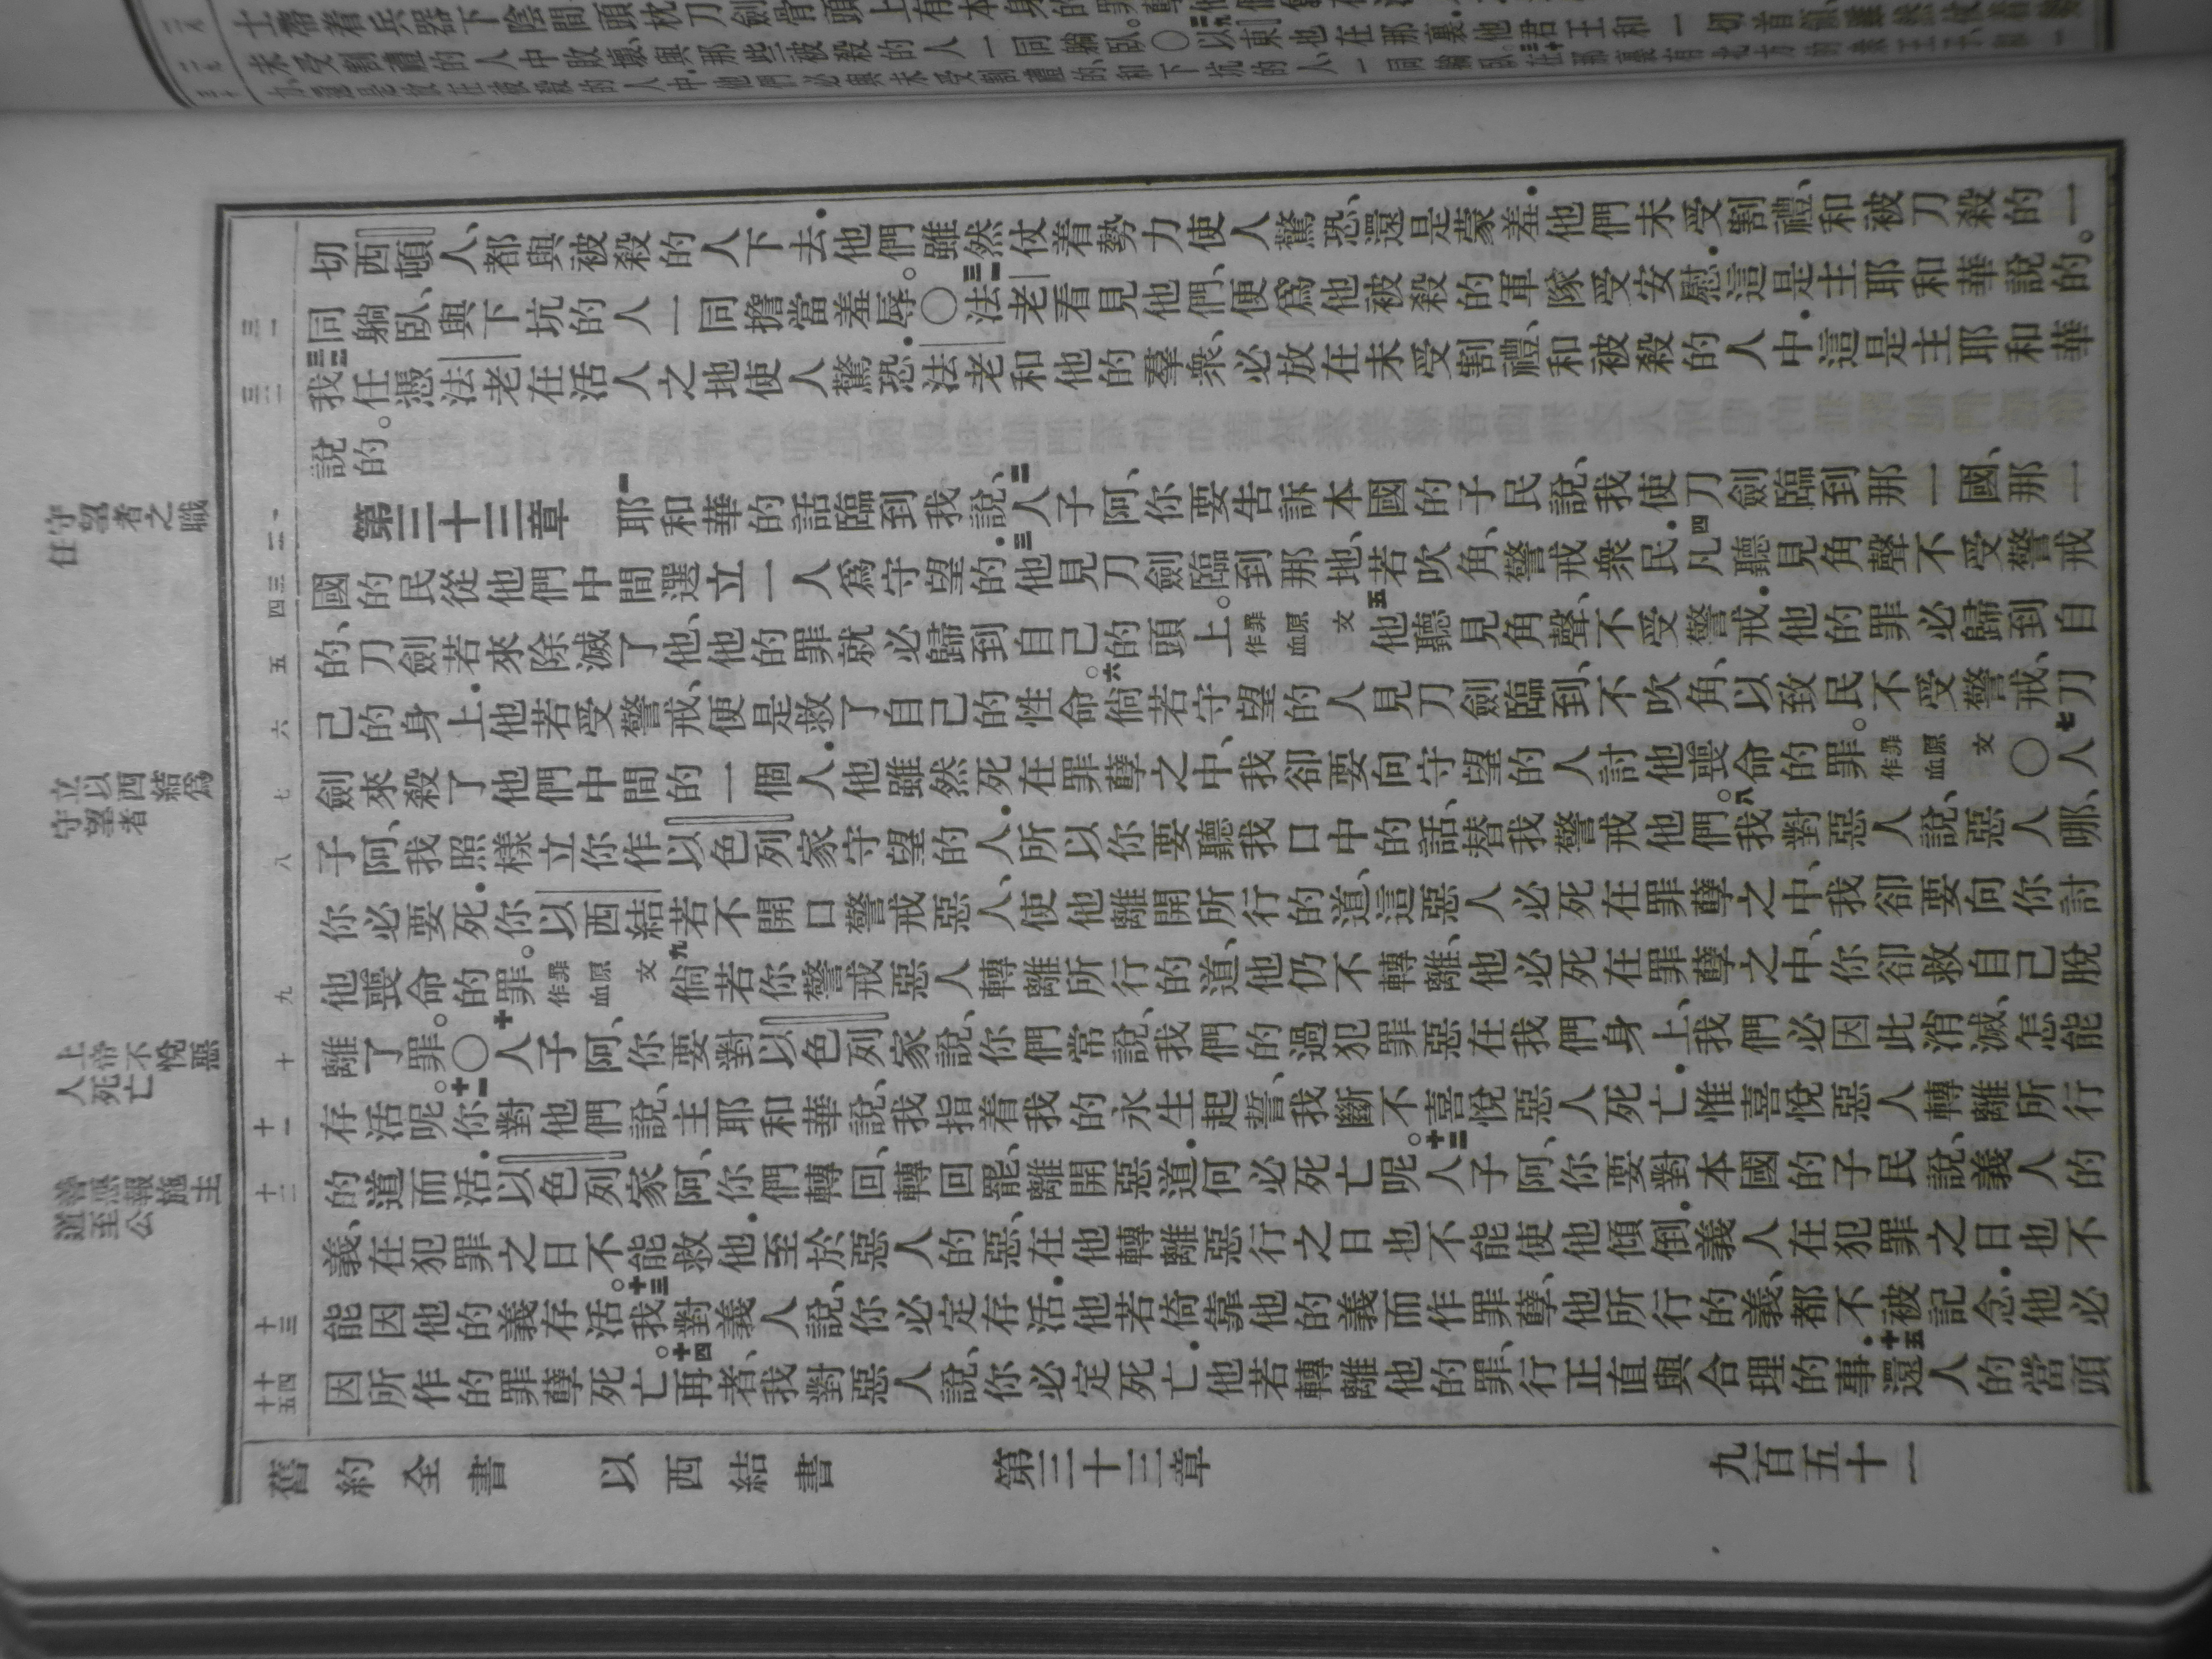 未受割禮的人中敗壞與那些被殺的人一同躺臥。〇以東也在那裏他君王和一切首領
切西頓人、都與被殺的人下去.他們雖然仗着勢力使人驚恐、還是蒙羞.他們未受割禮、和被刀殺的一
同躺臥、與下坑的人一同擔當羞辱。〇三一法老看見他們、便爲他被殺的軍隊受安慰.這是主耶和華說的。
三二我任憑法老在活人之地使人驚恐.法老和他的羣衆、必放在未受割禮、和被殺的人中.這是主耶和華
說的。
第三十三章 一耶和華的話臨到我說、二人子阿、你要告訴本國的子民說、我使刀劍臨到那一國、那一
國的民從他們中間選立一人爲守望的.三他見刀劍臨到那地、若吹角、警戒衆民.四凡聽見角聲不受警戒
的、刀劍若來除滅了他、他的罪就必歸到自己的頭上。罪原文作血五他聽見角聲、不受警戒.他的罪必歸到自
己的身上.他若受警戒、便是救了自己的性命。六倘若守望的人見刀劍臨到、不吹角、以致民不受警戒、刀
劍來殺了他們中間的一個人.他雖然死在罪孽之中、我卻要向守望的人討他喪命的罪。罪原文作血〇七人
子阿、我照樣立你作以色列家守望的人.所以你要聽我口中的話、替我警戒他們。八我對惡人說、惡人哪、
你必要死.你以西結若不開口警戒惡人、使他離開所行的道、這惡人必死在罪孽之中、我卻要向你討
他喪命的罪。罪原文作血九倘若你警戒惡人轉離所行的道、他仍不轉離、他必死在罪孽之中、你卻救自己脫
離了罪。〇十人子阿、你要對以色列家說、你們常說、我們的過犯罪惡在我們身上、我們必因此消滅、怎能
存活呢。十一你對他們說、主耶和華說、我指着我的永生起誓、我斷不喜悅惡人死亡.惟喜悅惡人轉離所行
的道而活.以色列家阿、你們轉回、轉回罷、離開惡道.何必死亡呢。十二人子阿、你要對本國的子民說、義人的
義、在犯罪之日不能救他.至於惡人的惡、在他轉離惡行之日也不能使他傾倒.義人在犯罪之日也不
能因他的義存活。十三我對義人說、你必定存活.他若倚靠他的義而作罪孽、他所行的義、都不被記念.他必
因所作的罪孽死亡。十四再者、我對惡人說、你必定死亡.他若轉離他的罪、行正直與合理的事.十五還人的當頭
三一
三二
一
二
三
四
五
六
七
八
九
十
十一
十二
十三
十四
十五
守望者之職任
立以西結爲守望者
上帝不悅惡人死亡
主施報善惡至公道
舊約全書 以西結書 第三十三章 九百五十一